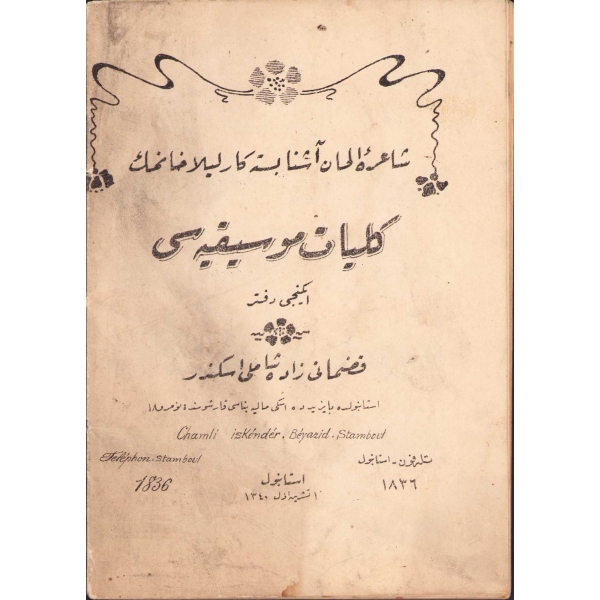 شاعرۀ الحان آشنا بسته‌كار ليلا خانمك
كليات موسيقيه سى
ايكنجى دفتر
فضمانى زاده شاملى اسكندر
استانبولده بايزيدده اسكى ماليه بناسى قارشوسنده نومرو ١٨
Chamli iskéndér, Béyazid, Stamboul
Téléphon. Stamboul
تله فون - استانبول
1836
١٨٣٦
استانبول
١ تشرين اول ١٣٤٠